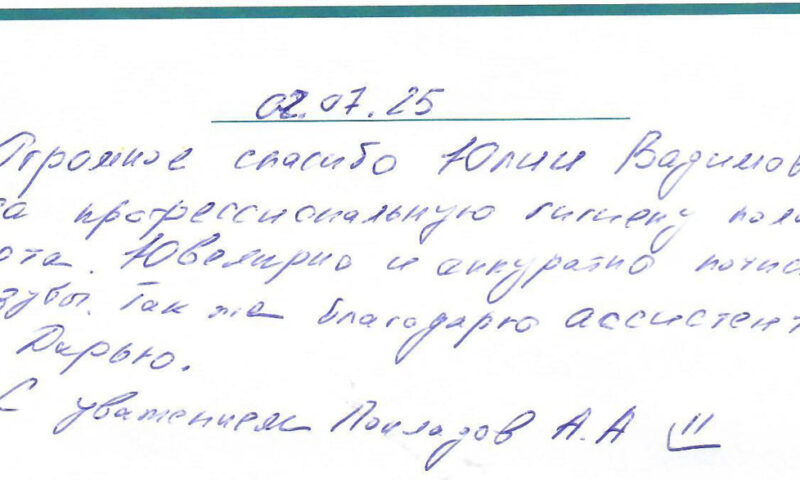 02.07.25
Огромное спасибо Юлии Вадимов
за профессиональную гигиену поло
рта. Ювелирно и аккуратно почис
зубы. Так же благодарю ассистент
Дарью.
С уважением Поклодов А.А